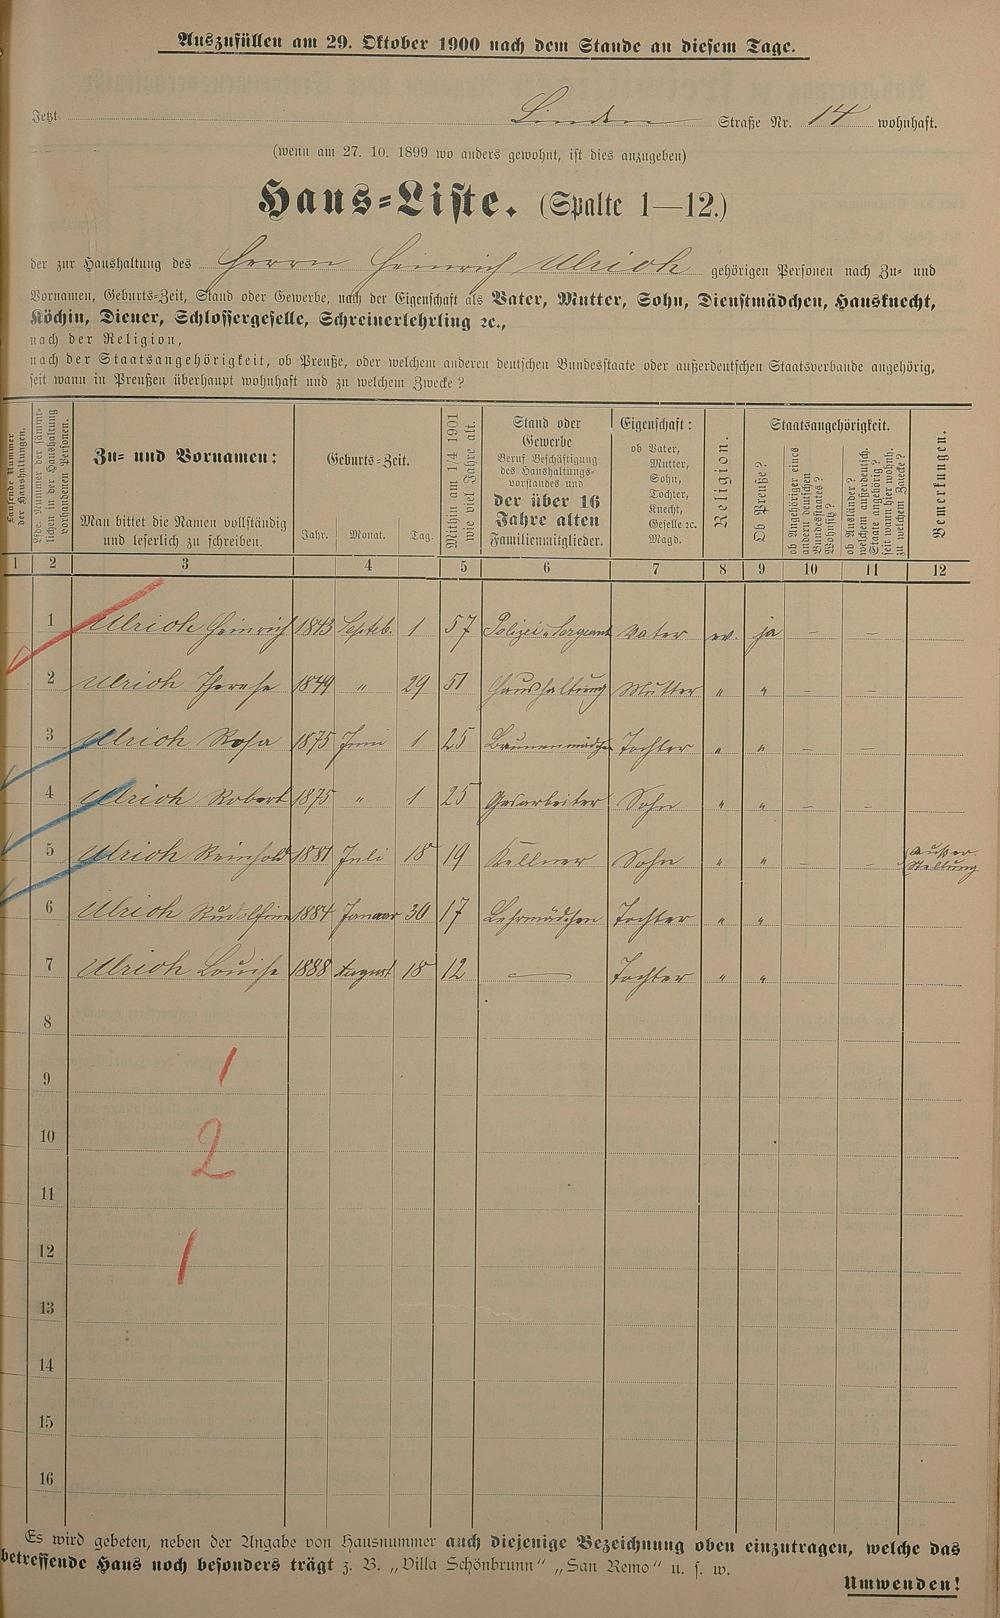 Auszufüllen am 29. Oktober 1900 nach dem Stande an diesem Tage.
Jetzt Linden Straße Nr. 14 wohnhaft.
(wenn am 27. 10. 1899 wo anders gewohnt, ist dies anzugeben)
Haus-Liste. (Spalte 1—12.)
der zur Haushaltung des Herrn Heinrich Ulrich gehörigen Personen nach Zu- und
Vornamen, Geburts-Zeit, Stand oder Gewerbe, nach der Eigenschaft als Vater, Mutter, Sohn, Dienstmädchen, Hausknecht,
Köchin, Diener, Schlossergeselle, Schreinerlehrling ꝛc.,
nach der Religion,
nach der Staatsangehörigkeit, ob Preuße, oder welchem anderen deutschen Bundesstaate oder außerdeutschen Staatsverbande angehörig,
seit wann in Preußen überhaupt wohnhaft und zu welchem Zwecke?
Laufende Nummer
der Haushaltungen.
Lfde. Nummer der sämmt-
lichen in der Haushaltung
vorhandenen Personen.
Zu- und Vornamen:
Man bittet die Namen vollständig
und leserlich zu schreiben.
Geburts-Zeit.
Jahr. Monat. Tag.
Mithin am 1/4 1901
wie viel Jahre alt.
Stand oder
Gewerbe
Beruf Beschäftigung
des Haushaltungs-
vorstandes und
der über 16
Jahre alten
Familienmitglieder.
Eigenschaft:
ob Vater,
Mutter,
Sohn,
Tochter,
Knecht,
Geselle ꝛc.
Magd.
Religion.
Staatsangehörigkeit.
Ob Preuße?
ob Angehöriger eines
andern deutschen
Bundesstaates?
Wohnsitz?
ob Ausländer?
welchem außerdeutsch.
Staate angehörig?
seit wann hier wohnh.
zu welchem Zwecke?
Bemerkungen.
1 2 3 4 5 6 7 8 9 10 11 12
1 Ulrich Heinrich 1843 Septeb. 1 57 Polizei-Sergeant Vater ev. ja – –
2 Ulrich Therese 1849 " 29 51 Haushaltung Mutter " " – –
3 Ulrich Rosa 1875 Juni 1 25 Brunnenmädchen Tochter " " – –
4 Ulrich Robert 1875 " 1 25 Gasarbeiter Sohn " " – –
5 Ulrich Reinhold 1881 Juli 18 19 Kellner Sohn " " – – (außer Stellung
6 Ulrich Rudolfine 1884 Januar 30 17 Lehrmädchen Tochter " "
7 Ulrich Louise 1888 August 18 12 — Tochter " "
8
9 1
10 2
11
12 1
13
14
15
16
Es wird gebeten, neben der Angabe von Hausnummer auch diejenige Bezeichnung oben einzutragen, welche das
betreffende Haus noch besonders trägt z. B. „Villa Schönbrunn" „San Remo" u. s. w.
Umwenden!